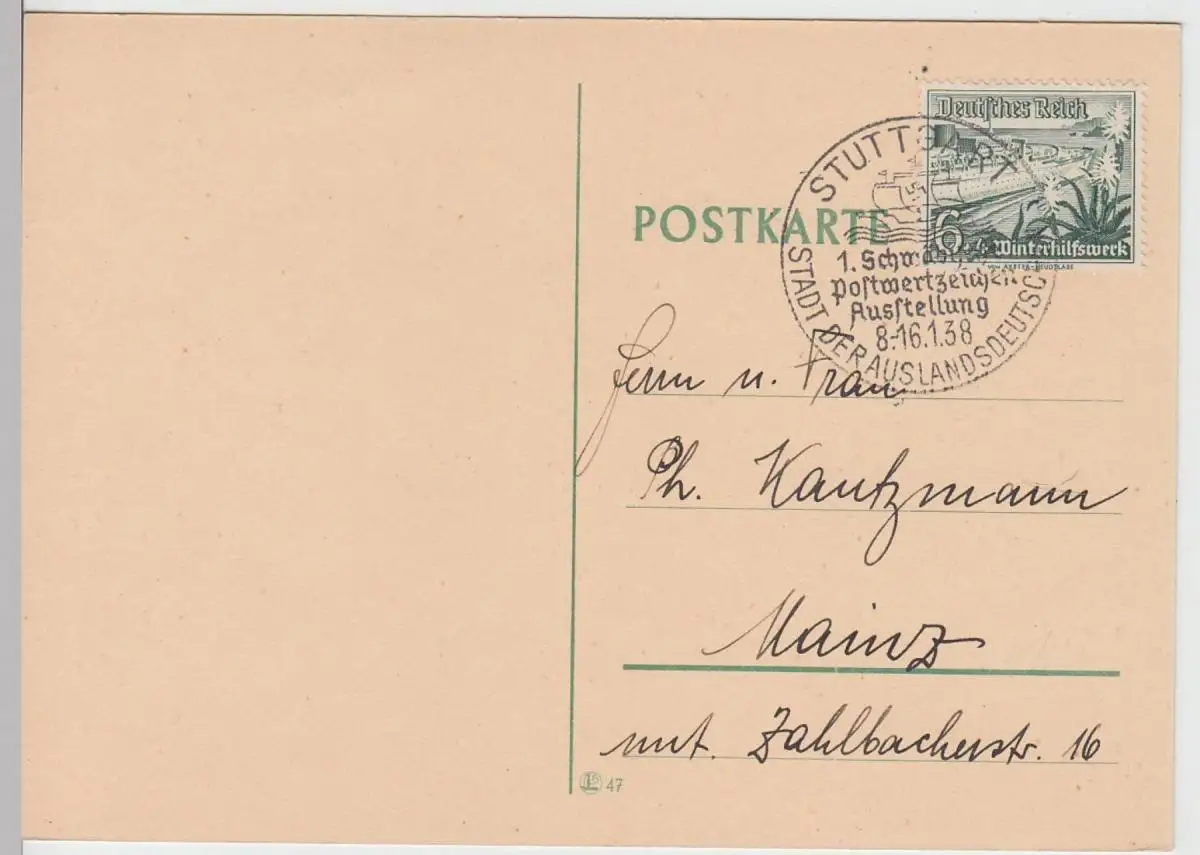 Deutsches Reich
6 + 4 Winterhilfswerk
STUTTGART
1. Schwäbische
Postwertzeichen
Ausstellung
8.-16.1.38
STADT DER AUSLANDSDEUTSCHEN
POSTKARTE
Herrn u. Frau
Ph. Kautzmann
Mainz
unt. Zahlbacherstr. 16
47